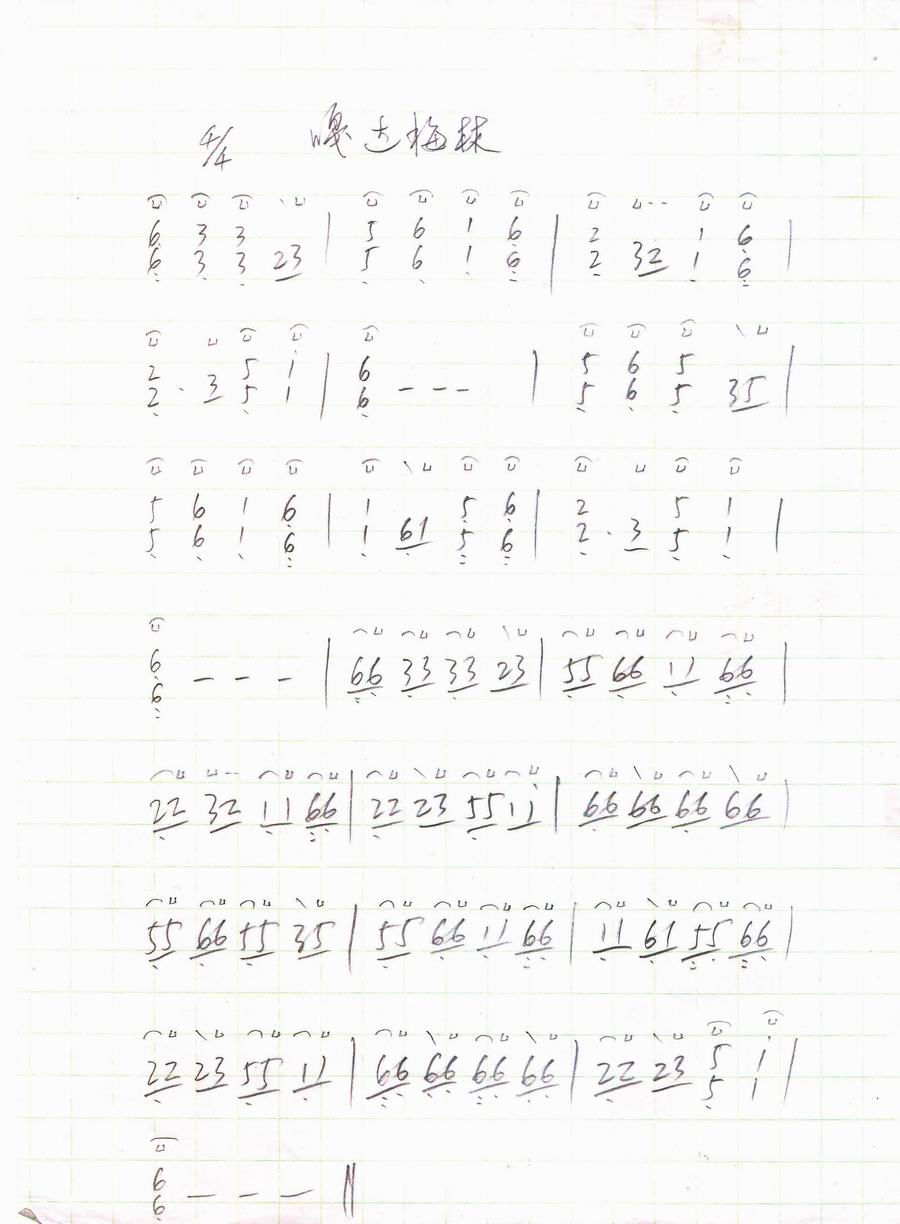 4/4 嘎达梅林
6 3 3 | 5 6 1 6 | 2 1 6 |
6 3 3 23 | 5 6 1 6 | 2 32 1 6 |
2 5 1 | 6 | 5 6 5 |
2 · 3 5 1 | 6 – – – | 5 6 5 35 |
5 6 1 6 | 1 5 6 | 2 5 1 |
5 6 1 6 | 1 61 5 6 | 2 · 3 5 1 |
6
6 – – – | 66 33 33 23 | 55 66 11 66 |
22 32 11 66 | 22 23 55 11 | 66 66 66 66 |
55 66 55 35 | 55 66 11 66 | 11 61 55 66 |
22 23 55 11 | 66 66 66 66 | 22 23 5 1 |
5 1
6
6 – – – ‖